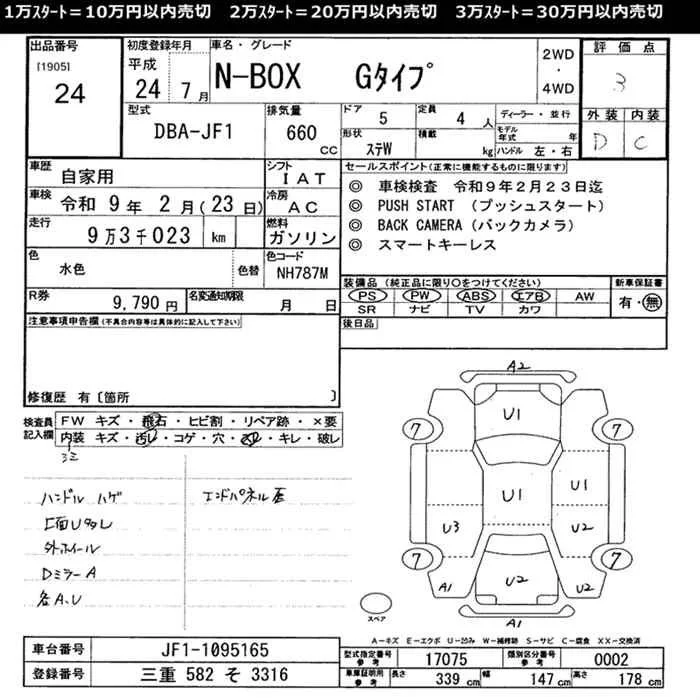 1万ｽﾀｰﾄ＝10万円以内売切　2万ｽﾀｰﾄ＝20万円以内売切　3万ｽﾀｰﾄ＝30万円以内売切
出品番号
[1905]
24
初度登録年月
平成
24 年 7 月
車名・グレード
N-BOX Gﾀｲﾌﾟ
2WD
・
4WD
評価点
3
外装 内装
D C
型式
DBA-JF1
排気量
660
CC
ドア
5
定員
4 人
形状
ステW
積載
kg
ディーラー・並行
モデル年式 年
ハンドル 左・右
車歴
自家用
シフト
IAT
車検
令和 9 年 2 月 (23 日)
冷房
AC
走行
9 万 3 千 023 km
燃料
ガソリン
色
水色
色替
色コード
NH787M
R券
9,790 円
名変通知期限
月 日
セールスポイント(正常に機能するものに限ります)
◎ 車検検査 令和9年2月23日迄
◎ PUSH START (プッシュスタート)
◎ BACK CAMERA (バックカメラ)
◎ スマートキーレス
装備品 (純正品に限り○をつけてください)
PS PW ABS エアB AW
SR ナビ TV カワ
新車保証書
有・無
後日品
注意事項申告欄 (不具合内容等は具体的に記入して下さい)
修復歴 有〔箇所 〕
検査員
記入欄
FW キズ・飛石・ヒビ割・リペア跡・×要
内装 キズ・汚レ・コゲ・穴・ キレ・破レ
シミ
ハンドル ハゲ
エンドパネル歪
上面U多し
外ホイール
DミラーA
各A.U
A2
U1
7
7
U1
U1
U3
U2
7
7
A1
U2
U2
A1
スペア
A－キズ E－エクボ U－凹み W－補修跡 S－サビ C－腐食 XX－交換済
車台番号
JF1-1095165
登録番号
三重 582 そ 3316
型式指定番号
参考
17075
類別区分番号
参考
0002
車庫証明用
参考
長さ 339 cm
幅 147 cm
高さ 178 cm